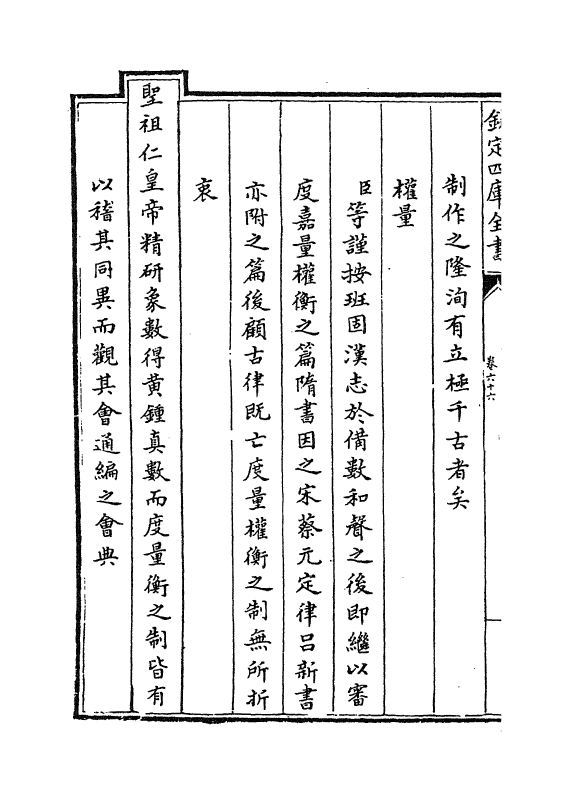 欽定四庫全書
卷六十六
制作之隆洵有立極千古者矣
權量
臣等謹按班固漢志於備數和聲之後即繼以審
度嘉量權衡之篇隋書因之宋蔡元定律呂新書
亦附之篇後顧古律既亡度量權衡之制無所折
衷
聖祖仁皇帝精研象數得黃鍾真數而度量衡之制皆有
以稽其同異而觀其會通編之會典